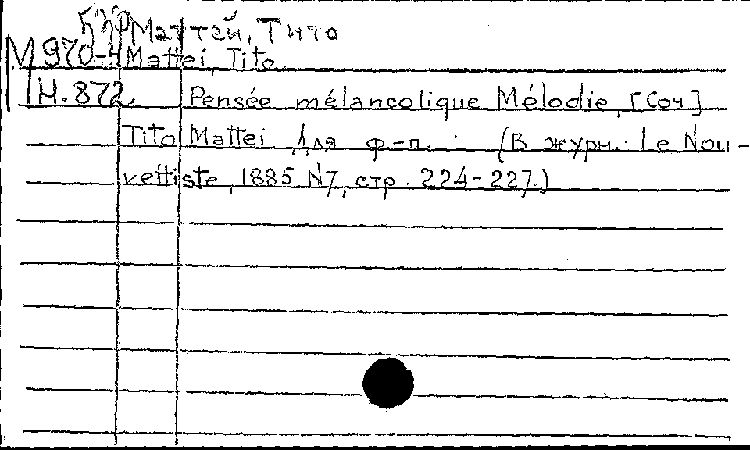 Маттей, Тито
М970-4 Mattei, Tito
Н.872 Pensée mélancolique Mélodie, [Соч]
Tito Mattei Для ф-п. (В журн. Le Nou-
vettiste, 1885 N7, стр. 224-227.)